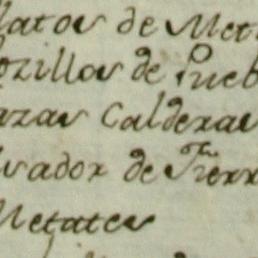 latos de Met
ozillos de Pueb
azas Calderas
vador de Fierr
Metates